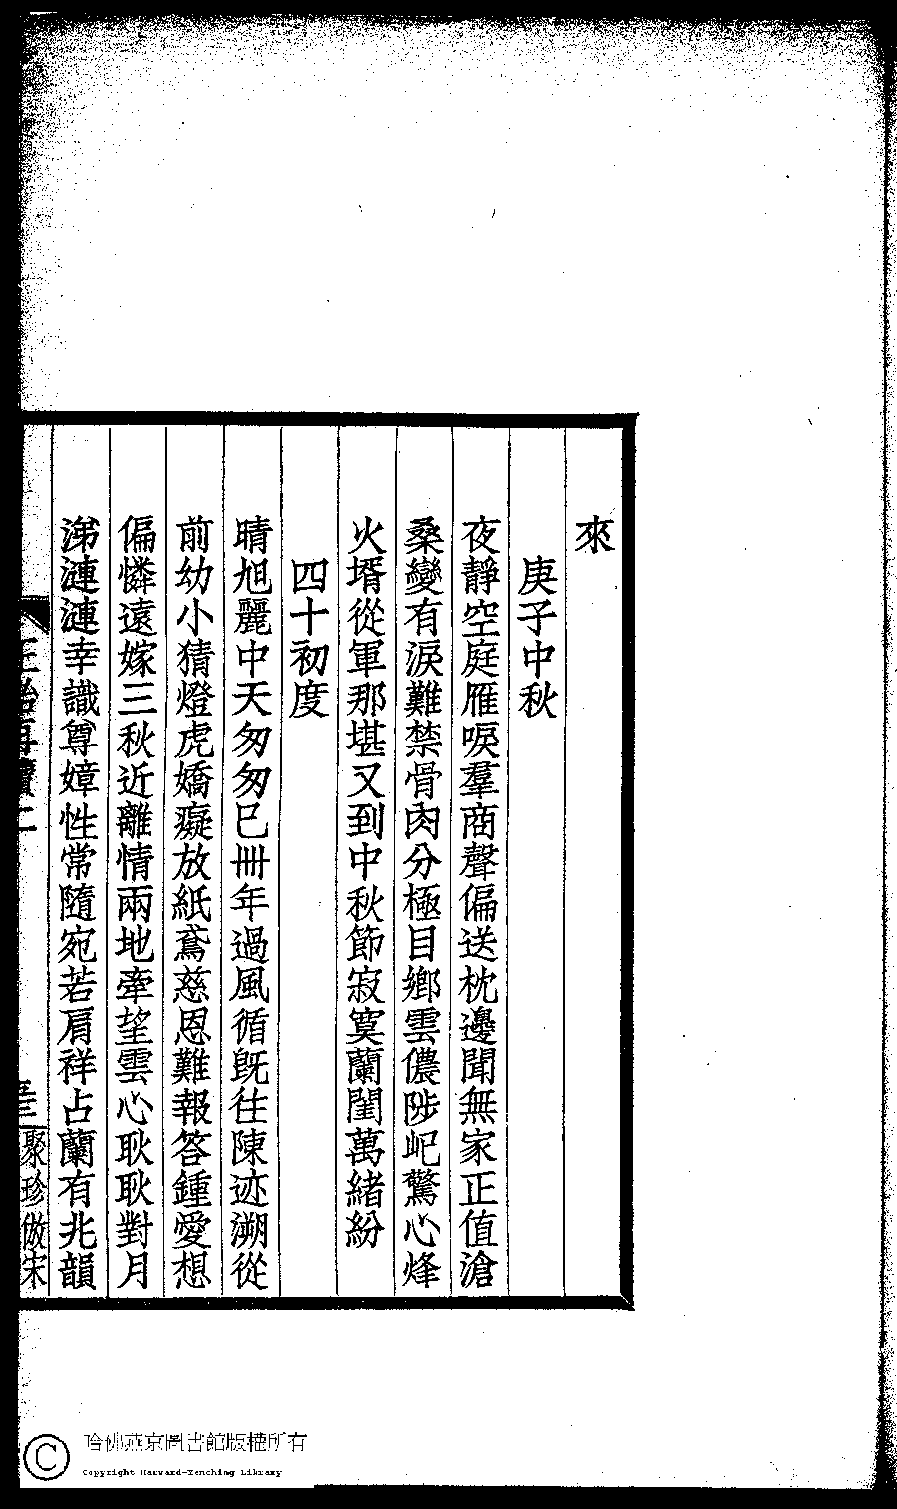 來
庚子中秋
夜靜空庭雁唳羣商聲偏送枕邊聞無家正值滄
桑變有淚難禁骨肉分極目鄉雲儂陟屺驚心烽
火壻從軍那堪又到中秋節寂寞蘭閨萬緒紛
四十初度
晴旭麗中天匆匆巳卌年過風循旣往陳迹溯從
前幼小猜燈虎嬌癡放紙鳶慈恩難報答鍾愛想
偏憐遠嫁三秋近離情兩地牽望雲心耿耿對月
涕漣漣幸識尊嫜性常隨宛若肩祥占蘭有兆韻
聚珍倣宋
哈佛燕京圖書館版權所有
Copyright Harvard-Yenching Library